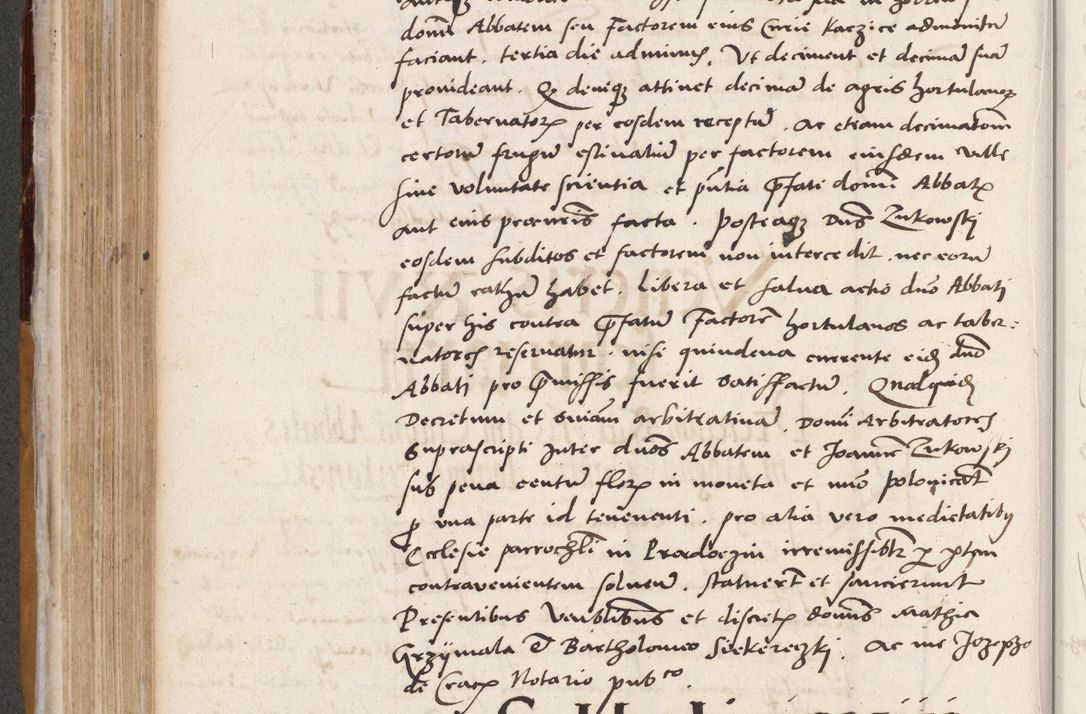 domi Abbatem seu Factorem eius Curie Kaczice admonitu
faciant. tertia die adminus. Ut deciment et decima sua
provideant. Q deneiq attinet decima de agris hortulanoꝝ
et Tabernatoꝝ per eosdem recepta. Ac etiam decimatom
certoru frugu estivaliu per factorem eiusdem ville
sine voluntate scientia et pntia Pfati domi Abbatꝭ
Aut eius procuris facta. Posteaq Dns Zukowskj
eosdem subditos et factorem non intercedit. nec eoru
factu rathu habet. Libera et salva actio dno Abbati
super his contra Pfatu Factore hortulanos ac taber:
natores reservatur. nisi quindena currente eid dno
Abbati pro Pmissis fuerit satisfactu. Qualquid
Decretum et sniam arbitrativa. Domi Arbitratores
Suprascripti Inter dnos Abbatem et Joanne Zukowskj
sub pena centu floꝝ in moneta et nuo polonicat
ꝓ una parte id tenenenti. pro alia vero medietatibꝫ
Ecclesie parrochli in Prandoczin irremissiblr ꝑ ptem
contravenientem solvenda. statuert et sancierunt
Presentibus Venblibus et discretꝭ domis Mathia
Grzymala Et Bartholomeo Siekereczkj. Ac me Jozepho
de Cracꝭ Notario pubco.